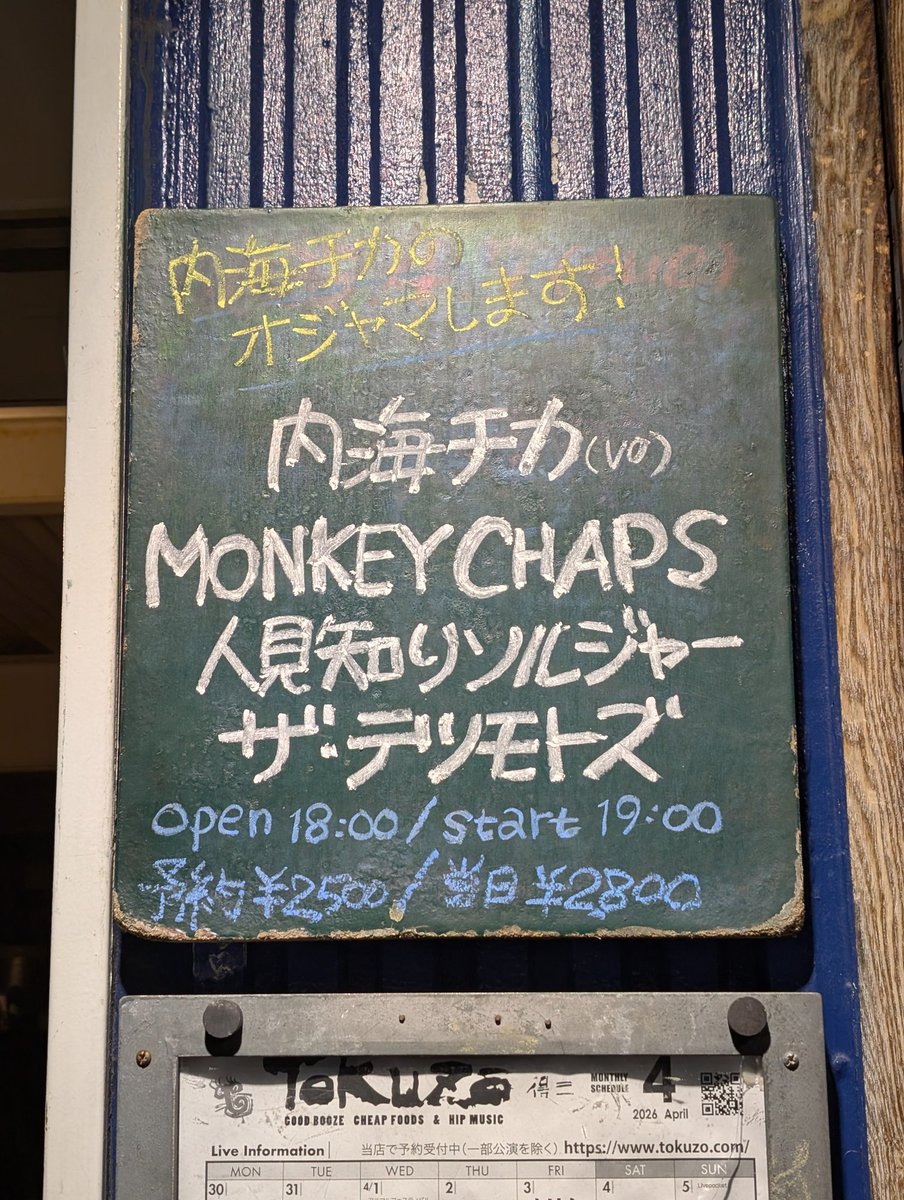 内海チカの
オジャマします!
内海チカ(vo)
MONKEY CHAPS
人見知りソルジャー
ザ・デツモトズ
open 18:00/start 19:00
予約¥2500/当日¥2,800
ToKuzo 得三 MONTHLY SCHEDULE 4
GOOD BOOZE CHEAP FOODS & HIP MUSIC 2026 April
Live Information 当店で予約受付中(一部公演を除く) https://www.tokuzo.com/
MON TUE WED THU FRI SAT SUN
30 31 4/1 2 3 4 5 Livepocket